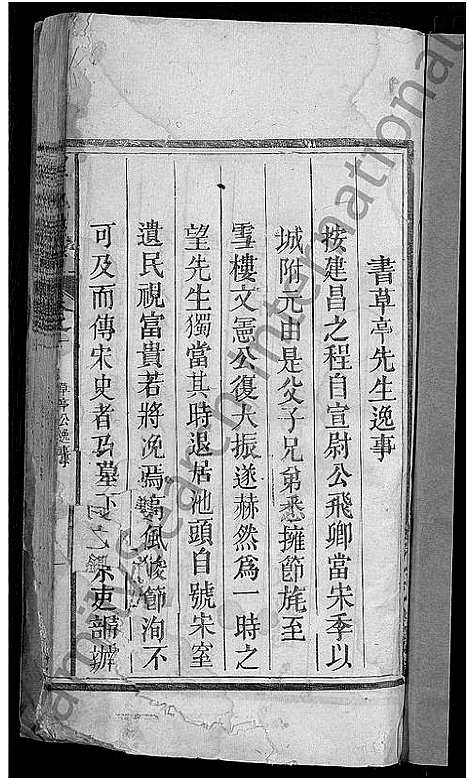 書草亭先生逸事
按建昌之程自宣尉公飛卿當宋季以
城附元由是父子兄弟悉擁節旄至
雪樓文憲公復大振遂赫然為一時之
望先生獨當其時退居池頭自號宋室
遺民視富貴若將浼焉高風峻節洵不
可及而傳宋史者
草亭公逸事